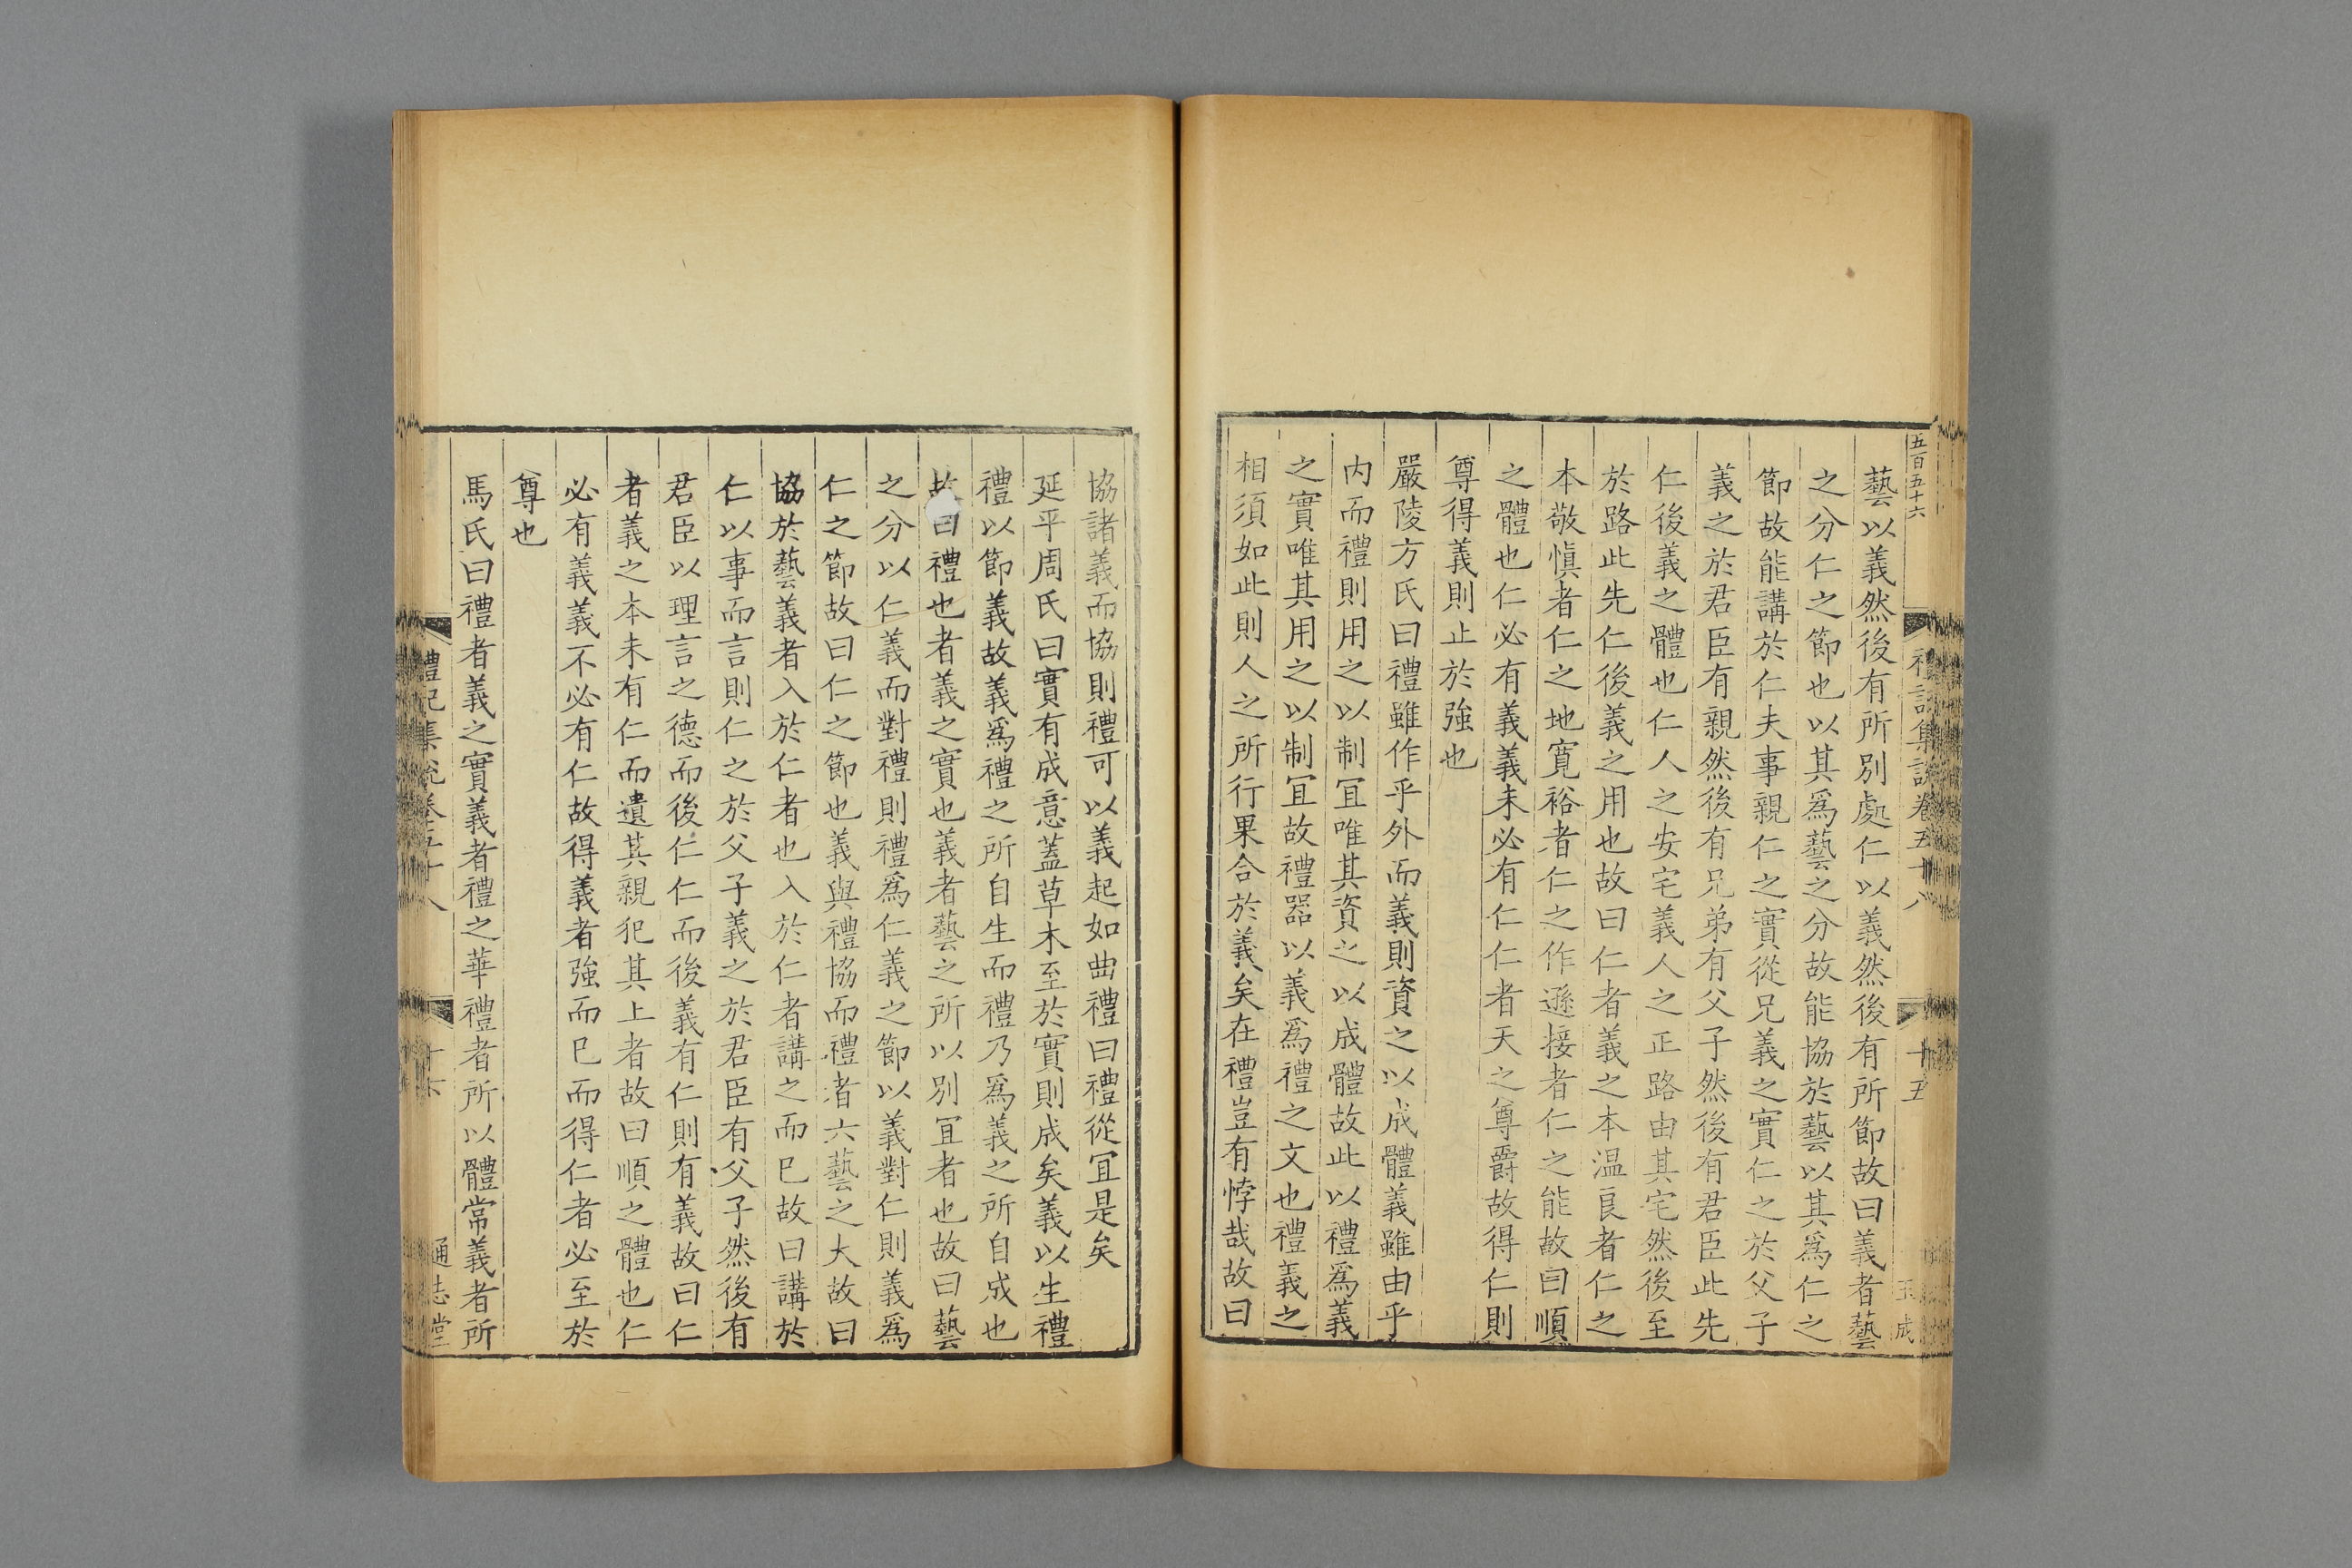 五百五十六
禮記集說卷五十八 十五 玉成
藝以義然後有所別處仁以義然後有所節故曰義者藝
之分仁之節也以其爲藝之分故能協於藝以其爲仁之
節故能講於仁夫事親仁之實從兄義之實仁之於父子
義之於君臣有親然後有兄弟有父子然後有君臣此先
仁後義之體也仁人之安宅義人之正路由其宅然後至
於路此先仁後義之用也故曰仁者義之本温良者仁之
本敬愼者仁之地寛裕者仁之作遜接者仁之能故曰順
之體也仁必有義義未必有仁仁者天之尊爵故得仁則
尊得義則止於強也
嚴陵方氏曰禮雖作乎外而義則資之以成體義雖由乎
内而禮則用之以制冝唯其資之以成體故此以禮爲義
之實唯其用之以制冝故禮器以義爲禮之文也禮義之
相須如此則人之所行果合於義矣在禮豈有悖哉故曰
協諸義而協則禮可以義起如曲禮曰禮從冝是矣
延平周氏曰實有成意蓋草木至於實則成矣義以生禮
禮以節義故義爲禮之所自生而禮乃爲義之所自成也
故曰禮也者義之實也義者藝之所以別冝者也故曰藝
之分以仁義而對禮則禮爲仁義之節以義對仁則義爲
仁之節故曰仁之節也義與禮協而禮者六藝之大故曰
協於藝義者入於仁者也入於仁者講之而巳故曰講於
仁以事而言則仁之於父子義之於君臣有父子然後有
君臣以理言之德而後仁仁而後義有仁則有義故曰仁
者義之本未有仁而遺其親犯其上者故曰順之體也仁
必有義義不必有仁故得義者強而巳而得仁者必至於
尊也
馬氏曰禮者義之實義者禮之華禮者所以體常義者所
禮記集說卷五十八 十六 通志堂